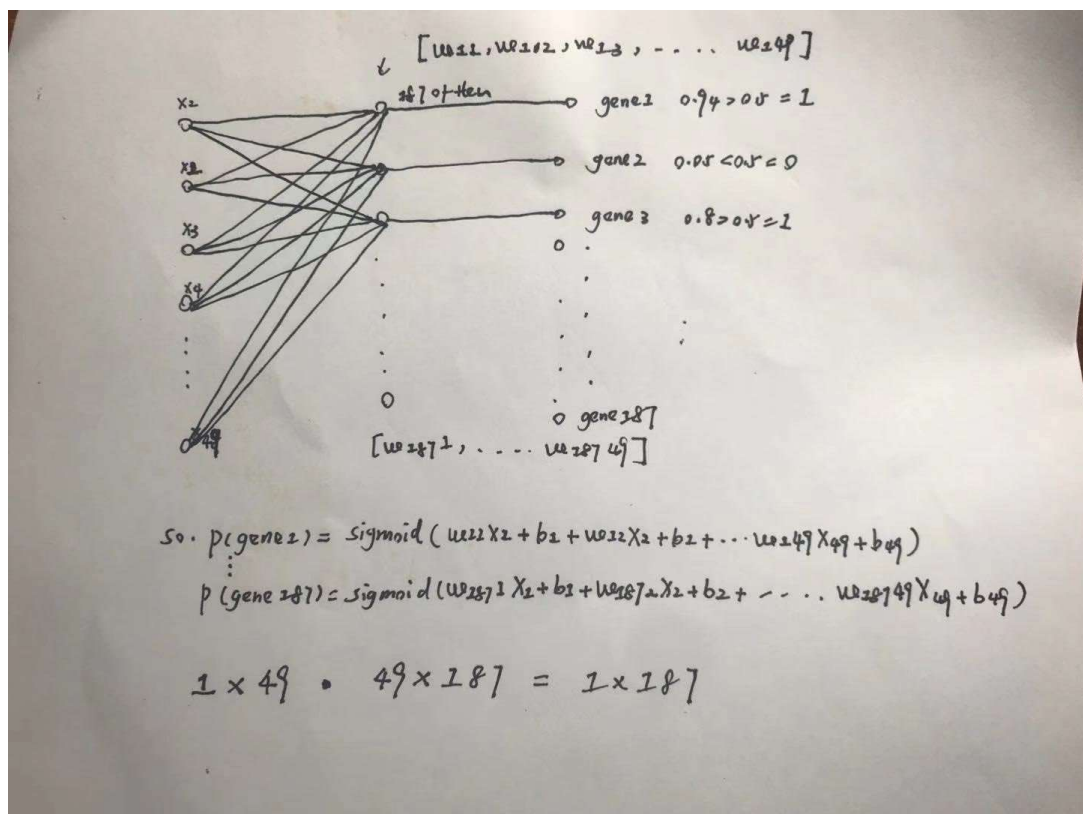 [w11, w102, w13, - . . . . w149]
187 of them
x2 gene1 0.94>0.5 = 1
x2 gene2 0.05<0.5 = 0
x3 gene3 0.8>0.5=1
x4
gene187
x49 [w1871, . . . . w187 49]
so. p(gene1) = sigmoid (w11x1 + b1 + w12x2 + b2 + ... w149x49 + b49)
p(gene187) = sigmoid (w1871 x1 + b1 + w1872x2 + b2 + - . . . w18749x49 + b49)
1 x 49 . 49 x 187 = 1 x 187